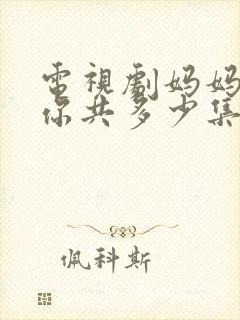 電視劇妈妈
你共多少集
佩科斯